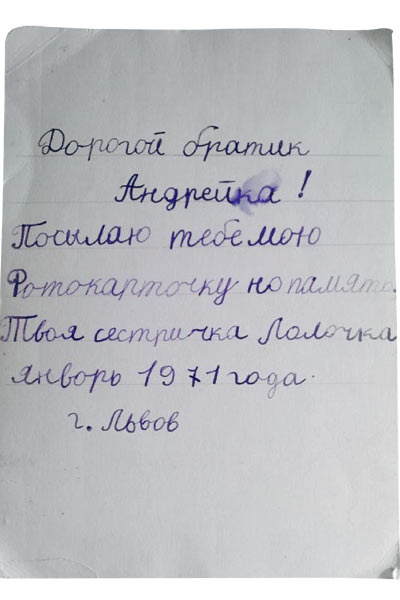 Дорогой братик
Андрейка!
Посылаю тебе мою
Фотокарточку на память.
Твоя сестричка Лолочка
январь 1971 года.
г. Львов